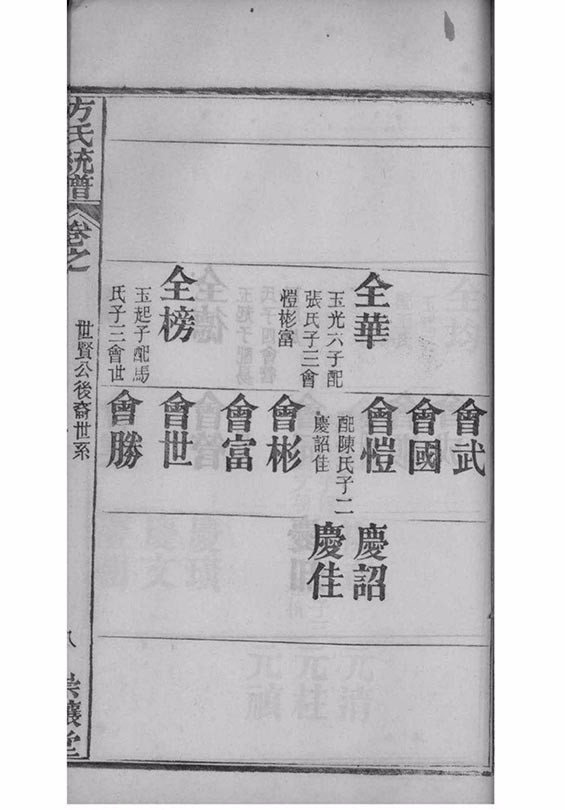 全華
玉光六子配
張氏子三會
愷彬富
全榜
玉起子配馬
氏子三會世
會武
會國
會愷
配陳氏子二
慶詔佳
會彬
會富
會世
會勝
慶詔
慶佳
方氏統譜
卷之
世賢公後裔世系
八